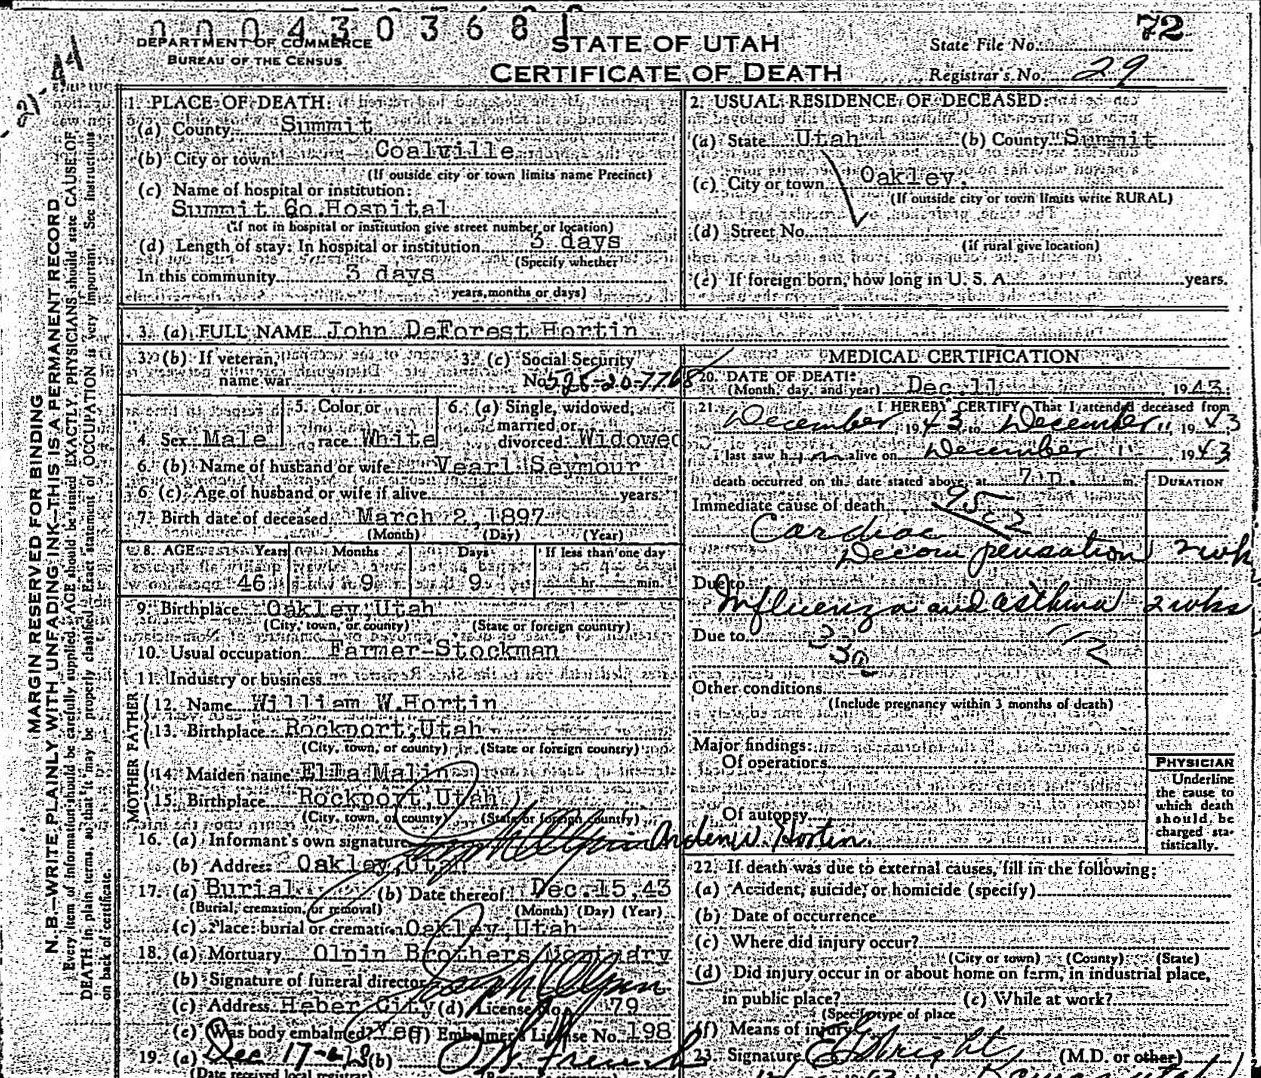 000430368
72
DEPARTMENT OF COMMERCE
BUREAU OF THE CENSUS
STATE OF UTAH
CERTIFICATE OF DEATH
State File No.
Registrar's No. 29
MARGIN RESERVED FOR BINDING
N. B.—WRITE PLAINLY WITH UNFADING INK—THIS IS A PERMANENT RECORD
Every item of information should be carefully supplied. AGE should be stated EXACTLY. PHYSICIANS should state CAUSE OF
DEATH in plain terms, so that it may be properly classified. Exact statement of OCCUPATION is very important. See instructions
on back of certificate.
1. PLACE OF DEATH:
(a) County Summit
(b) City or town Coalville
(If outside city or town limits name Precinct)
(c) Name of hospital or institution:
Summit Co. Hospital
(If not in hospital or institution give street number or location)
(d) Length of stay: In hospital or institution 3 days
(Specify whether
In this community 3 days
years, months or days)
2. USUAL RESIDENCE OF DECEASED:
(a) State Utah (b) County Summit
(c) City or town Oakley,
(If outside city or town limits write RURAL)
(d) Street No.
(If rural give location)
(e) If foreign born, how long in U. S. A. years.
3. (a) FULL NAME John DeForest Hortin
3. (b) If veteran, name war
3. (c) Social Security No. 525-20-7768
4. Sex Male
5. Color or race White
6. (a) Single, widowed, married or divorced: Widowed
6. (b) Name of husband or wife Vearl Seymour
6. (c) Age of husband or wife if alive years.
7. Birth date of deceased March 2, 1897
(Month) (Day) (Year)
8. AGE Years Months Days If less than one day
46 9 9 hr. min.
9. Birthplace Oakley, Utah
(City, town, or county) (State or foreign country)
10. Usual occupation Farmer-Stockman
11. Industry or business
FATHER
12. Name William W. Hortin
13. Birthplace Rockport, Utah
(City, town, or county) (State or foreign country)
MOTHER
14. Maiden name Ella Malin
15. Birthplace Rockport, Utah
(City, town, or county) (State or foreign country)
16. (a) Informant's own signature Arden W. Hortin
(b) Address Oakley, Utah
17. (a) Burial (b) Date thereof Dec. 15, 43
(Burial, cremation, or removal) (Month) (Day) (Year)
(c) Place: burial or cremation Oakley, Utah
18. (a) Mortuary Olpin Brothers Mortuary
(b) Signature of funeral director
(c) Address Heber City (d) License No. 79
(e) Was body embalmed? Yes (f) Embalmer's License No. 198
19. (a) Dec 17 (b)
(Date received local registrar)
MEDICAL CERTIFICATION
20. DATE OF DEATH:
(Month, day, and year) Dec. 11, 1943.
21. I HEREBY CERTIFY, That I attended deceased from
December 1943, to December 11, 1943
I last saw him alive on December 11, 1943
death occurred on the date stated above, at 7 p. m.
DURATION
Immediate cause of death 95c2
Cardiac
Decompensation 2 wks
Due to
Influenza and asthma 2 wks
Due to 33a 112
Other conditions
(Include pregnancy within 3 months of death)
Major findings:
Of operations
Of autopsy
PHYSICIAN
Underline
the cause to
which death
should be
charged sta-
tistically.
22. If death was due to external causes, fill in the following:
(a) Accident, suicide, or homicide (specify)
(b) Date of occurrence
(c) Where did injury occur?
(City or town) (County) (State)
(d) Did injury occur in or about home on farm, in industrial place,
in public place? (e) While at work?
(Specify type of place
(f) Means of injury
23. Signature (M.D. or other)